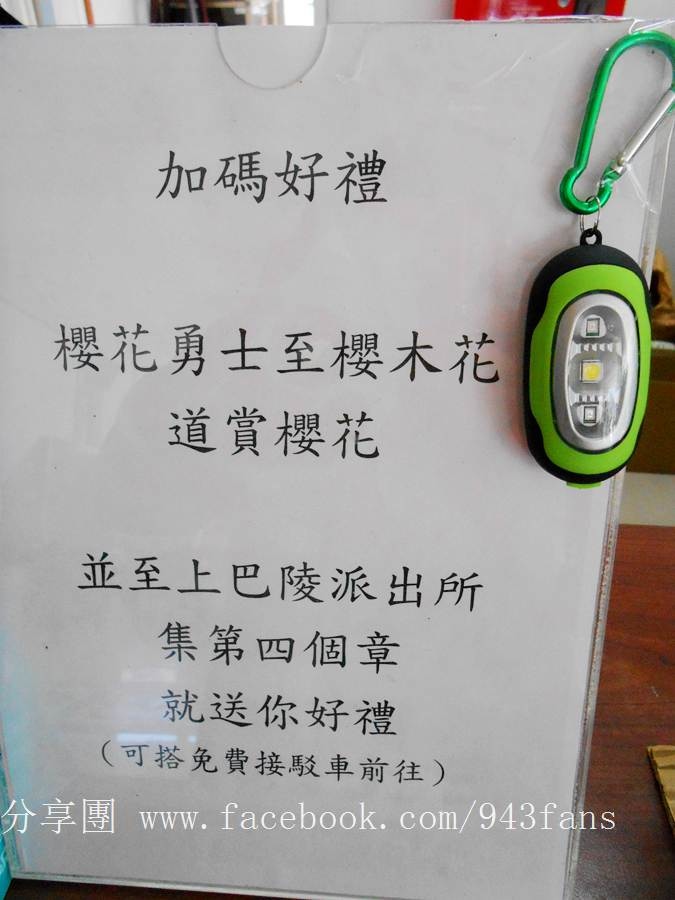 加碼好禮
櫻花勇士至櫻木花
道賞櫻花
並至上巴陵派出所
集第四個章
就送你好禮
（可搭免費接駁車前往）
分享團 www.facebook.com/943fans